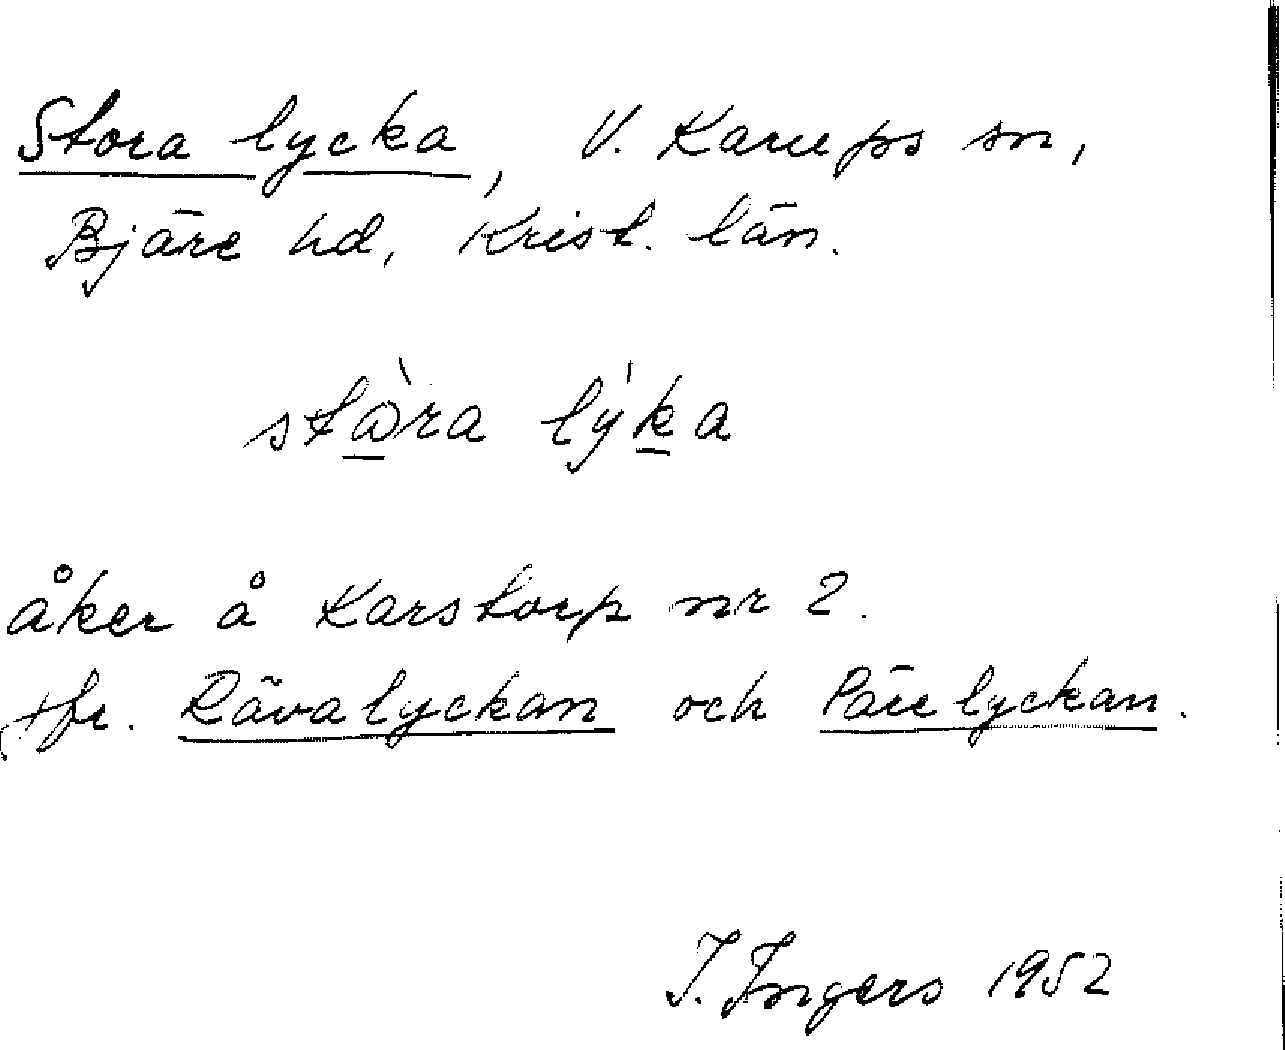 Stora lycka, V. Karups sn,
Bjäre hd, Krist. län.
stàra lýka
åker å Karstorp nr 2.
Jfr. Rävalyckan och Pärelyckan.
I. Ingers 1952